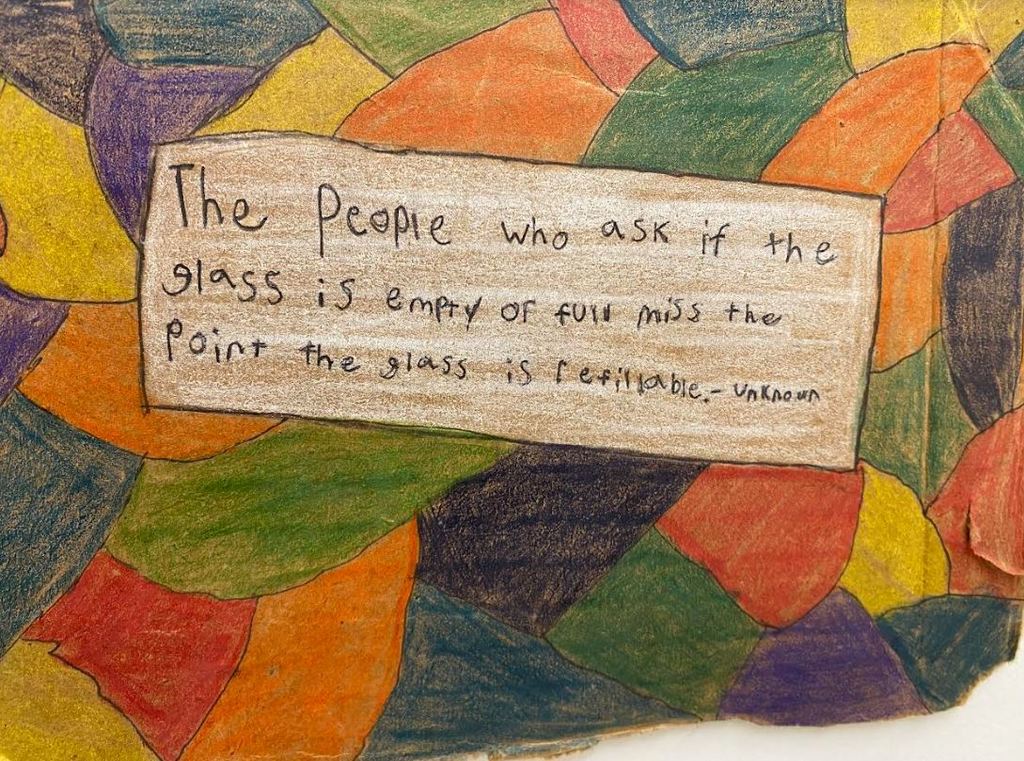 The People who ask if the
glass is empty of full miss the
Point the glass is refillable.- unknown